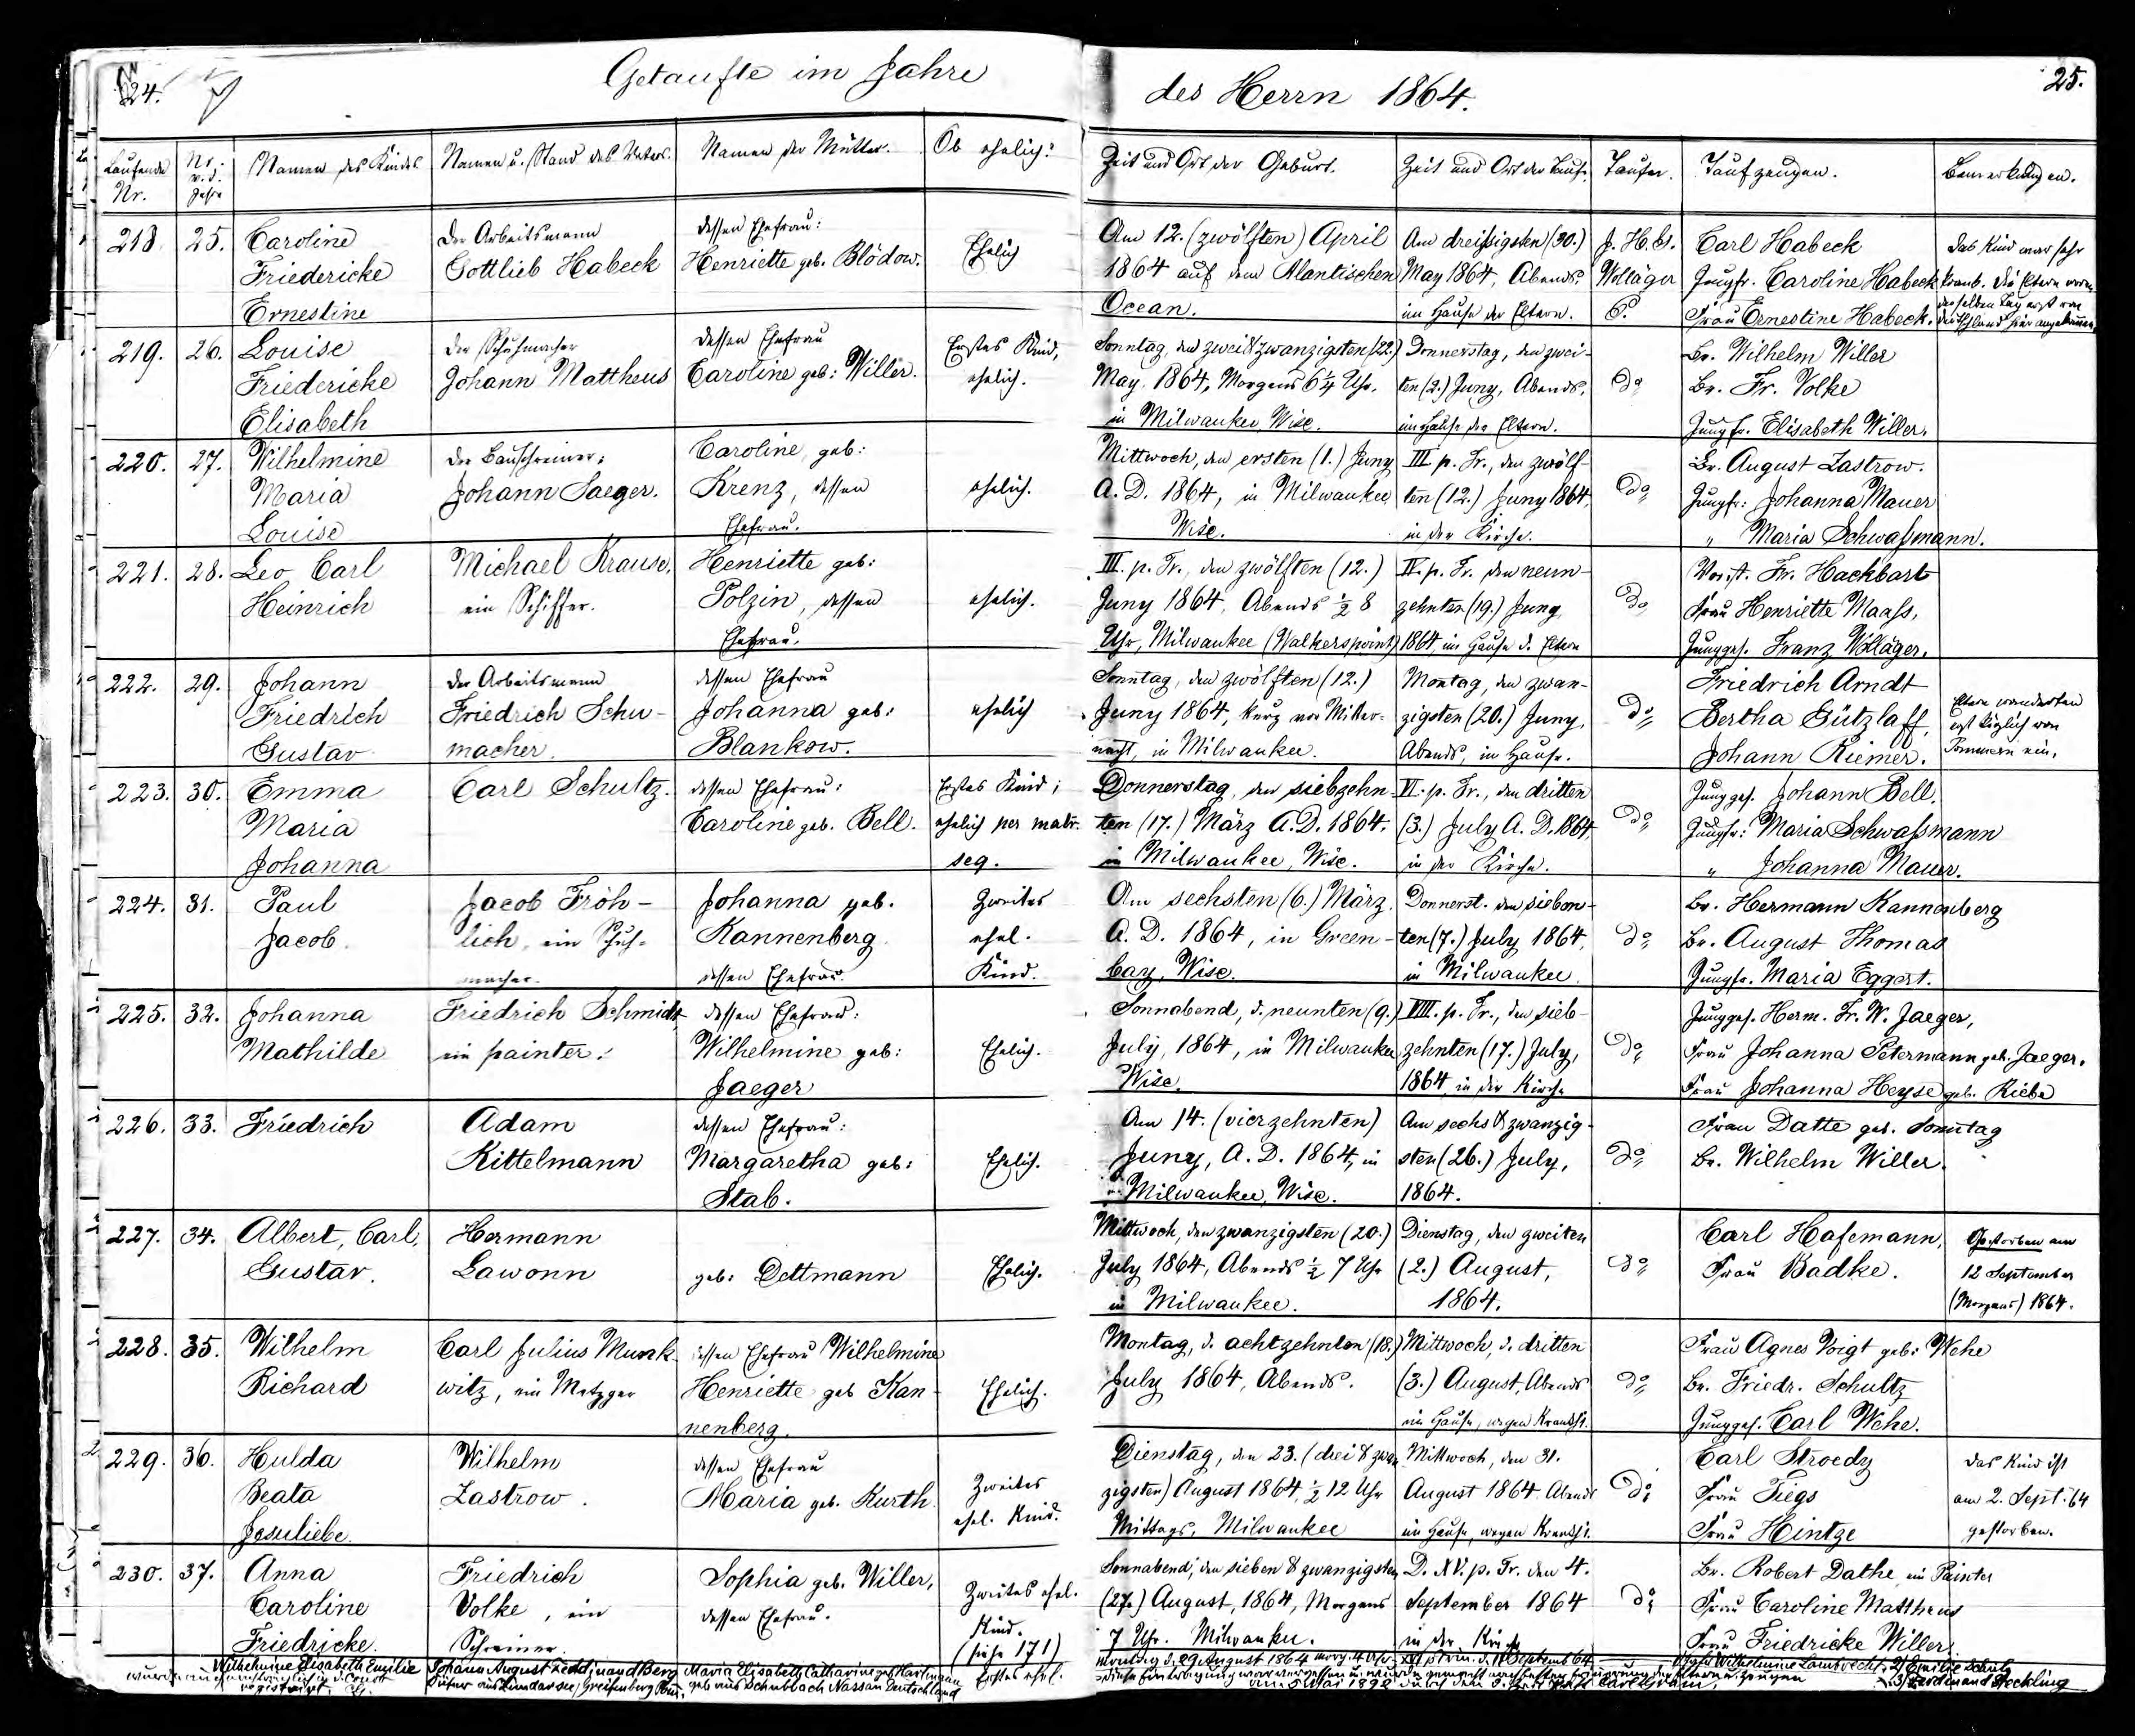 24.
Getaufte im Jahre
des Herrn 1864.
25.
Laufende Nr.
Nr. v. d. Jahre
Namen des Kindes
Namen u. Stand des Vaters.
Namen der Mutter.
Ob ehelich?
Zeit und Ort der Geburt.
Zeit und Ort der Taufe
Taufer.
Taufzeugen.
Bemerkungen.
218. 25. Caroline
Friedericke
Ernestine
Der Arbeitsmann
Gottlieb Habeck
dessen Ehefrau:
Henriette geb. Blödow.
Ehelich
Am 12. (zwölften) April
1864 auf dem Atlantischen
Ocean.
Am dreißigsten (30.)
May 1864, Abends.
im Hause der Eltern.
Wolläger
P.
Carl Habeck
Jungfr. Caroline Habeck
Frau Ernestine Habeck.
Das Kind war sehr
krank. Die Eltern waren
denselben Tag erst von
Deutschland hier angekommen.
219. 26. Louise
Friedericke
Elisabeth
Der Schuhmacher
Johann Mattheus
dessen Ehefrau
Caroline geb: Willer.
Erstes Kind,
ehelich.
Sonntag, den zwei & zwanzigsten (22.)
May 1864, Morgens 6 1/4 Uhr,
in Milwaukee, Wisc.
Donnerstag, den zwei-
ten (2.) Juny, Abends,
im Hause der Eltern.
do
Br. Wilhelm Willer
Br. Fr. Volke
Jungfr. Elisabeth Willer.
220. 27. Wilhelmine
Maria
Louise
Der Bauschreiner:
Johann Saeger.
Caroline, geb:
Krenz, dessen
Ehefrau.
ehelich.
Mittwoch, den ersten (1.) Juny
A. D. 1864, in Milwaukee
Wisc.
III p. Tr., den zwölf-
ten (12.) Juny 1864,
in der Kirche.
do
Br. August Zastrow.
Jungfr: Johanna Mauer
" Maria Schwaßmann.
221. 28. Leo Carl
Heinrich
Michael Krause,
ein Schiffer.
Henriette geb:
Polzin, dessen
Ehefrau.
ehelich.
III. p. Tr., den zwölften (12.)
Juny 1864, Abends 1/2 8
Uhr, Milwaukee (Walkerspoint)
IV. p. Tr. den neun-
zehnten (19.) Juny,
1864 im Hause d. Eltern
do
Vorst. Fr. Hackbart
Frau Henriette Maaß,
Jungges. Franz Wolläger.
222. 29. Johann
Friedrich
Gustav
Der Arbeitsmann
Friedrich Schu-
macher.
dessen Ehefrau
Johanna geb:
Blankow.
ehelich
Sonntag, den zwölften (12.)
Juny 1864, kurz vor Mitter-
nacht, in Milwaukee.
Montag, den zwan-
zigsten (20.) Juny,
Abends, im Hause.
do
Friedrich Arndt
Bertha Gützlaff,
Johann Riemer.
Eltern wanderten
erst kürzlich von
Pommern ein.
223. 30. Emma
Maria
Johanna
Carl Schultz.
dessen Ehefrau:
Caroline geb. Bell.
Erstes Kind;
ehelich per matr.
seq.
Donnerstag, den siebzehn-
ten (17.) März A. D. 1864.
in Milwaukee, Wisc.
VI. p. Tr., den dritten
(3.) July A. D. 1864,
in der Kirche.
do
Jungges. Johann Bell,
Jungfr: Maria Schwaßmann
" Johanna Mauer.
224. 31. Paul
Jacob.
Jacob Fröh-
lich, ein Schuh-
macher.
Johanna geb.
Kannenberg
dessen Ehefrau.
Zweites
ehel.
Kind.
Am sechsten (6.) März,
A. D. 1864, in Green-
bay, Wisc.
Donnerst. den sieben-
ten (7.) July 1864,
in Milwaukee.
do
Br. Hermann Kannenberg
Br. August Thomas
Jungfr. Maria Eggert.
225. 32. Johanna
Mathilde
Friedrich Schmidt,
ein painter.
dessen Ehefrau:
Wilhelmine geb:
Jaeger
Ehelich.
Sonnabend, d. neunten (9.)
July, 1864, in Milwaukee,
Wisc.
VIII. p. Tr., den sieb-
zehnten (17.) July,
1864, in der Kirche
do
Jungges. Herm. Fr. W. Jaeger,
Frau Johanna Petermann geb. Jaeger.
Frau Johanna Heyse geb. Riebe
226. 33. Friedrich
Adam
Kittelmann
dessen Ehefrau:
Margaretha geb:
Stab.
Ehelich.
Am 14. (vierzehnten)
Juny, A. D. 1864, in
Milwaukee, Wisc.
Am sechs & zwanzig-
sten (26.) July,
1864.
do
Frau Datte geb. Sonntag
Br. Wilhelm Willer.
227. 34. Albert, Carl,
Gustav.
Hermann
Lawonn
geb: Dettmann
Ehelich.
Mittwoch, den zwanzigsten (20.)
July 1864, Abends 1/2 7 Uhr
in Milwaukee.
Dienstag, den zweiten
(2.) August,
1864.
do
Carl Hasemann,
Frau Badke.
Gestorben am
12 September
(Morgens) 1864.
228. 35. Wilhelm
Richard
Carl Julius Munk-
witz, ein Metzger
dessen Ehefrau Wilhelmine
Henriette geb Kan-
nenberg.
Ehelich.
Montag, d. achtzehnten (18.)
July 1864, Abends.
Mittwoch, d. dritten
(3.) August, Abends
im Hause, wegen Krankh.
do
Frau Agnes Voigt geb: Wehe
Br. Friedr. Schultz
Jungges. Carl Wehe.
229. 36. Hulda
Beata
Jesuliebe.
Wilhelm
Zastrow.
dessen Ehefrau
Maria geb. Kurth
Zweites
ehel. Kind.
Dienstag, den 23. (drei & zwan-
zigsten) August 1864, 1/2 12 Uhr
Mittags, Milwaukee
Mittwoch, den 31.
August 1864 Abends
im Hause, wegen Krankh.
do
Carl Stroedy
Frau Tiegs
Frau Hintze
Das Kind ist
am 2. Sept. 64
gestorben.
230. 37. Anna
Caroline
Friedricke.
Friedrich
Volke, ein
Schreiner.
Sophia geb. Willer,
dessen Ehefrau.
Zweites ehel.
Kind.
(siehe 171)
Sonnabend, den sieben & zwanzigsten
(27.) August, 1864, Morgens
7 Uhr. Milwaukee.
D. XV. p. Tr. den 4.
September 1864
in der Kirche
do
Br. Robert Dathe, ein Painter
Frau Caroline Mattheus
Frau Friedricke Willer.
Wilhelmine Elisabeth Emilie
Johann August Ferdinand Berg
aus Greifenberg Pom.
Maria Elisabeth Catharine geb Hartmann
geb aus Schubbach Nassau Deutschland
Erstes ehel.
Montag d. 29 August 1864 morg. 4 Uhr
XVI p trin. d. 11 Septemb 64
Wilhelmine Lambrecht, 2) Emilie Schulz
3) Ferdinand Steckling
Diese Eintragung war vergessen u. wurde gemacht
am 5 Mai 1892